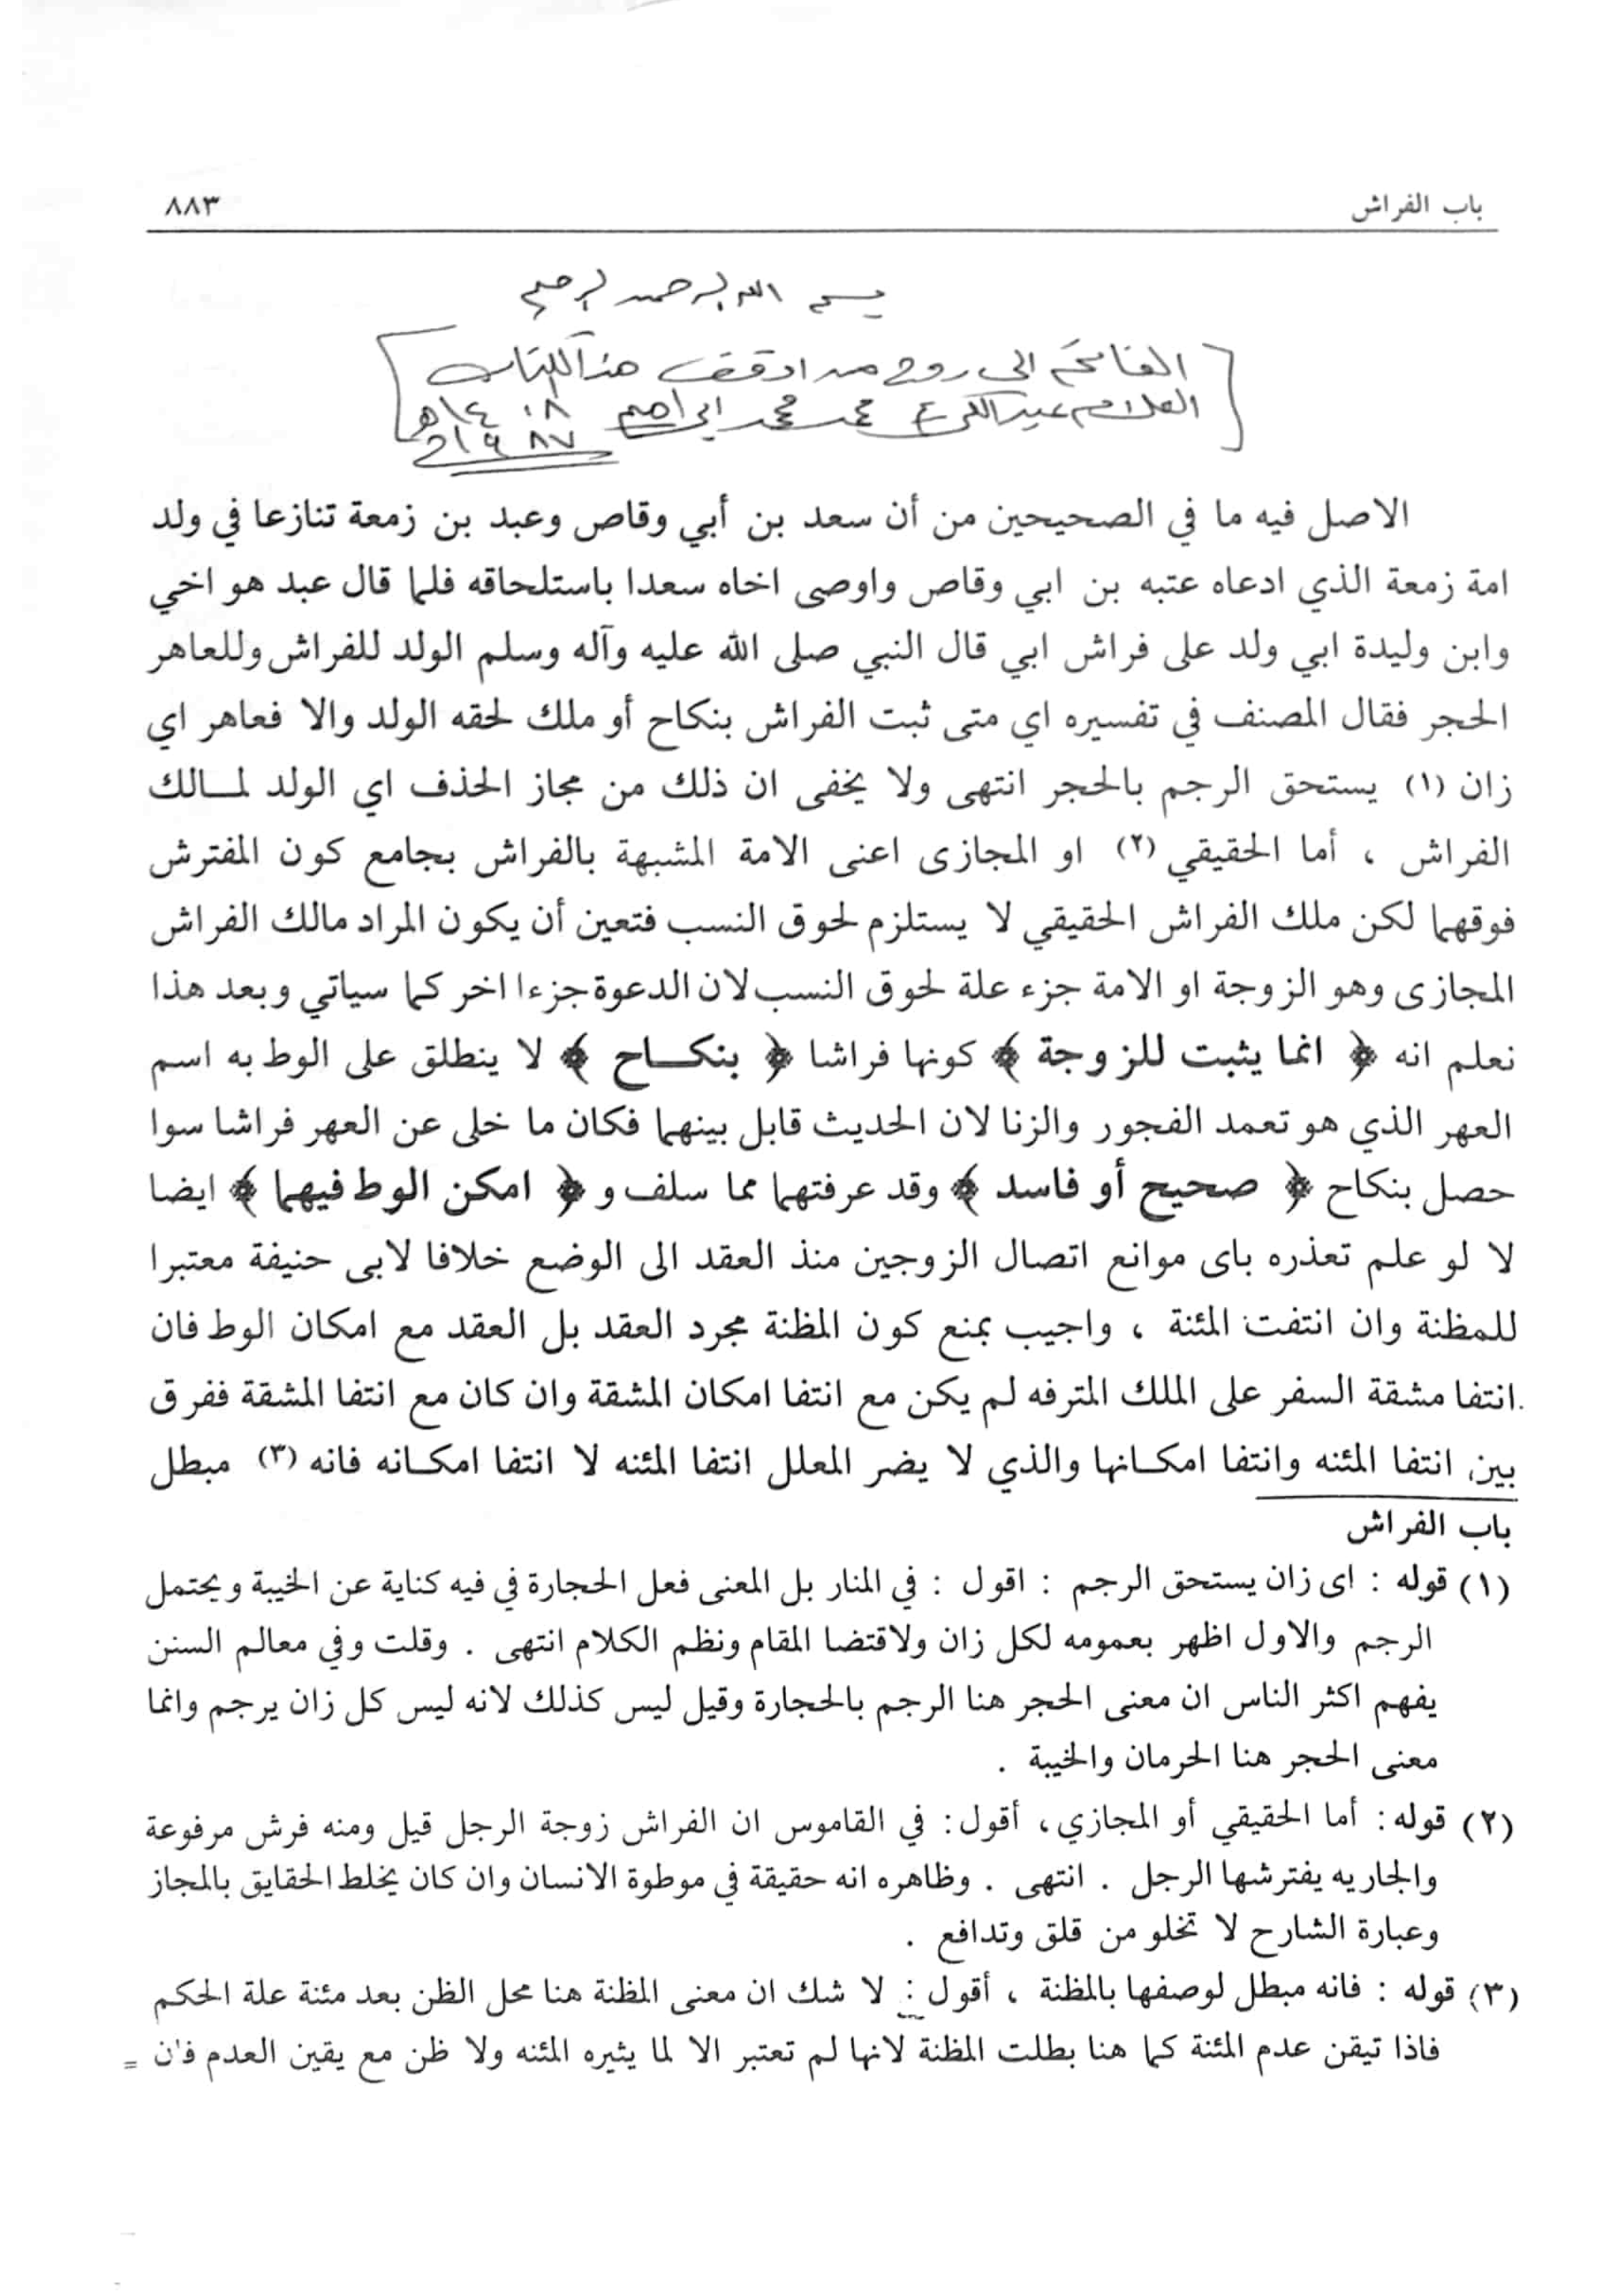 باب الفراش
٨٨٣
بسم الله الرحمن الرحيم
الفاتحة الى روح من اوقف هذا الكتاب
العلامه عبد الكريم محمد محمد ابراهيم ١٤٠٨هـ
١٩٨٧م
الاصل فيه ما في الصحيحين من أن سعد بن أبي وقاص وعبد بن زمعة تنازعا في ولد
امة زمعة الذي ادعاه عتبه بن ابي وقاص واوصى اخاه سعدا باستلحاقه فلما قال عبد هو اخي
وابن وليدة ابي ولد على فراش ابي قال النبي صلى الله عليه وآله وسلم الولد للفراش وللعاهر
الحجر فقال المصنف في تفسيره اي متى ثبت الفراش بنكاح أو ملك لحقه الولد والا فعاهر اي
زان (١) يستحق الرجم بالحجر انتهى ولا يخفى ان ذلك من مجاز الحذف اي الولد لمـالك
الفراش ، أما الحقيقي (٢) او المجازى اعنى الامة المشبهة بالفراش بجامع كون المفترش
فوقهما لكن ملك الفراش الحقيقي لا يستلزم لحوق النسب فتعين أن يكون المراد مالك الفراش
المجازى وهو الزوجة او الامة جزء علة لحوق النسب لان الدعوة جزءا اخر كما سياتي وبعد هذا
نعلم انه ﴿ انما يثبت للزوجة ﴾ كونها فراشا ﴿ بنكـــاح ﴾ لا ينطلق على الوط به اسم
العهر الذي هو تعمد الفجور والزنا لان الحديث قابل بينهما فكان ما خلى عن العهر فراشا سوا
حصل بنكاح ﴿ صحيح أو فاسد ﴾ وقد عرفتهما مما سلف و ﴿ امكن الوط فيهما ﴾ ايضا
لا لو علم تعذره باى موانع اتصال الزوجين منذ العقد الى الوضع خلافا لابى حنيفة معتبرا
للمظنة وان انتفت المئنة ، واجيب بمنع كون المظنة مجرد العقد بل العقد مع امكان الوط فان
انتفا مشقة السفر على الملك المترفه لم يكن مع انتفا امكان المشقة وان كان مع انتفا المشقة ففرق
بين انتفا المئنه وانتفا امكـانها والذي لا يضر المعلل انتفا المئنه لا انتفا امكـانه فانه (٣) مبطل
باب الفراش
(١) قوله : اى زان يستحق الرجم : اقول : في المنار بل المعنى فعل الحجارة في فيه كناية عن الخيبة ويحتمل
الرجم والاول اظهر بعمومه لكل زان ولاقتضا المقام ونظم الكلام انتهى . وقلت وفي معالم السنن
يفهم اكثر الناس ان معنى الحجر هنا الرجم بالحجارة وقيل ليس كذلك لانه ليس كل زان يرجم وانما
معنى الحجر هنا الحرمان والخيبة .
(٢) قوله : أما الحقيقي أو المجازي ، أقول : في القاموس ان الفراش زوجة الرجل قيل ومنه فرش مرفوعة
والجاريه يفترشها الرجل . انتهى . وظاهره انه حقيقة في موطوة الانسان وان كان يخلط الحقايق بالمجاز
وعبارة الشارح لا تخلو من قلق وتدافع .
(٣) قوله : فانه مبطل لوصفها بالمظنة ، أقول : لا شك ان معنى المظنة هنا محل الظن بعد مئنة علة الحكم
فاذا تيقن عدم المئنة كما هنا بطلت المظنة لانها لم تعتبر الا لما يثيره المئنه ولا ظن مع يقين العدم فان =